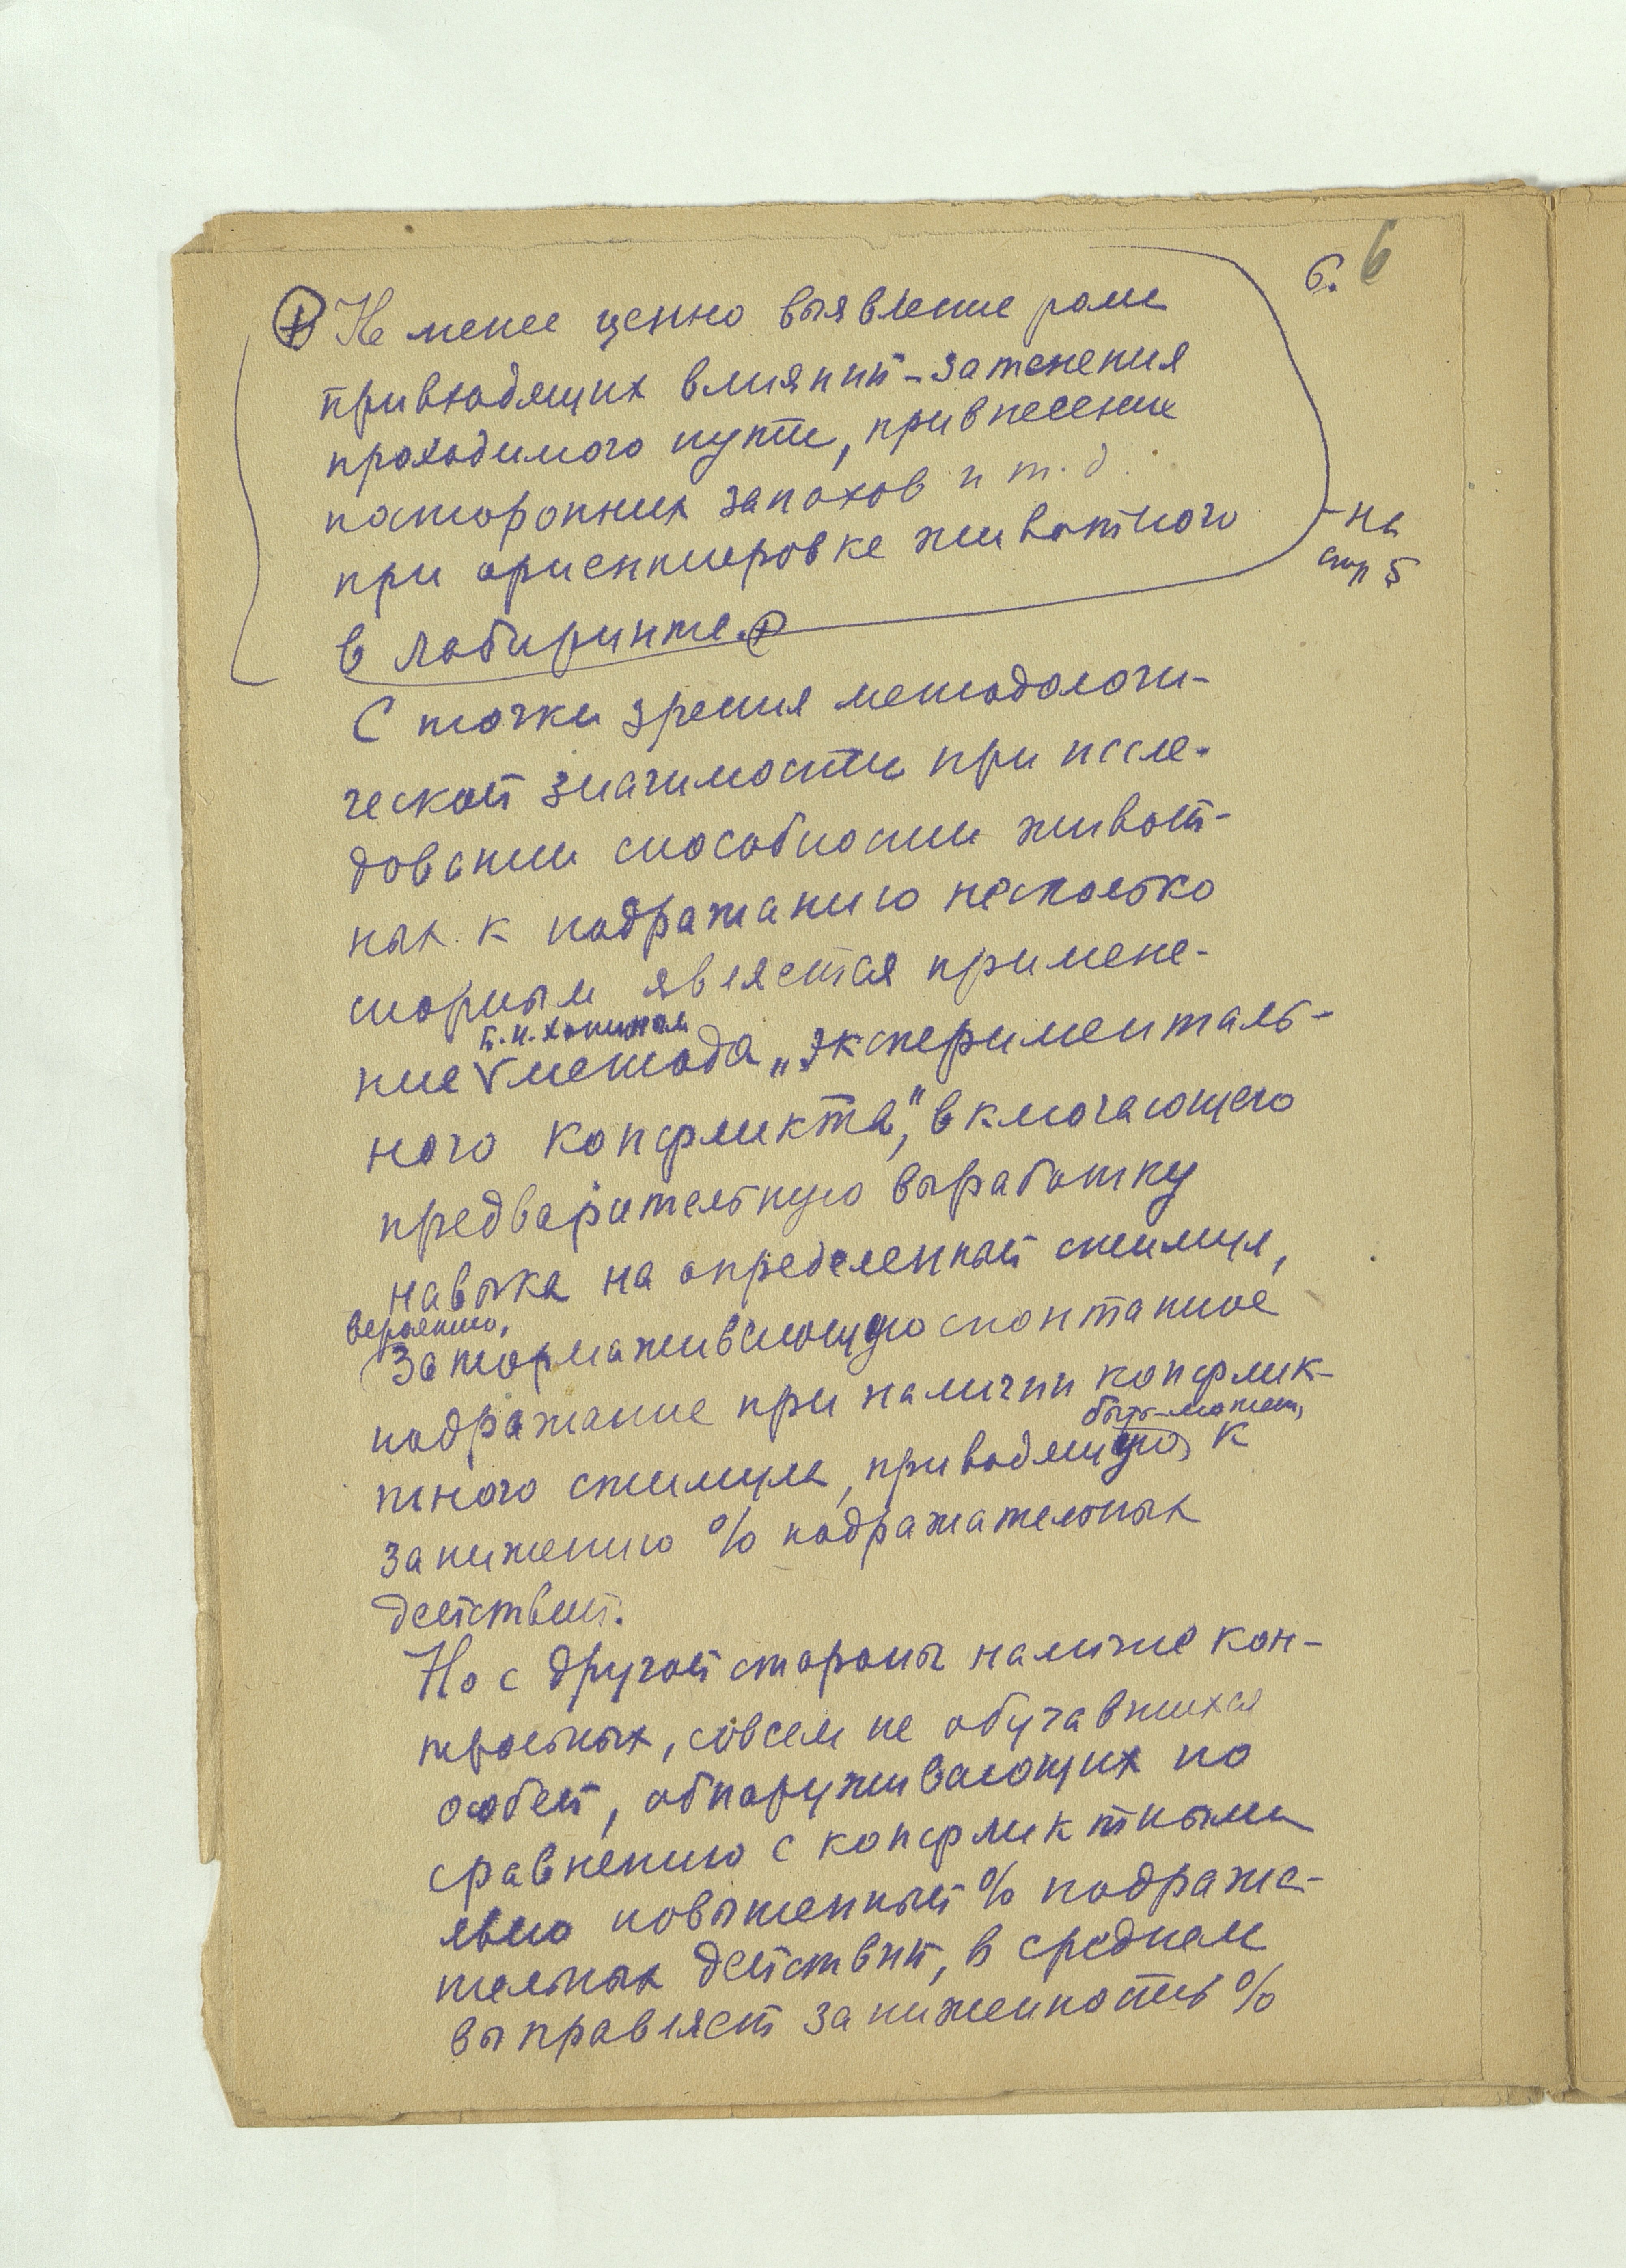 6. 6
⊕ Не менее ценно выявление роли
привходящих влияний - затенения
проходимого пути, привнесение
посторонних запахов и т.д.
при ориентировке животного
в лабиринте. ⊕
- на
стр 5
С точки зрения методологи-
ческой значимости при иссле-
довании способности живот-
ных к подражанию несколько
спорным является примене-
Б.И. Хотиным
ние V метода „эксперименталь-
ного конфликта", включающего
предварительную выработку
навыка на определенный стимул,
вероятно,
затормаживающую спонтанное
подражание при наличии конфлик-
тного стимула, приводящую, к
быть-может,
занижению % подражательных
действий.
Но с другой стороны наличие кон-
трольных, совсем не обучавшихся
особей, обнаруживающих по
сравнению с конфликтными
явно повышенный % подража-
тельных действий, в среднем
выправляет заниженность %